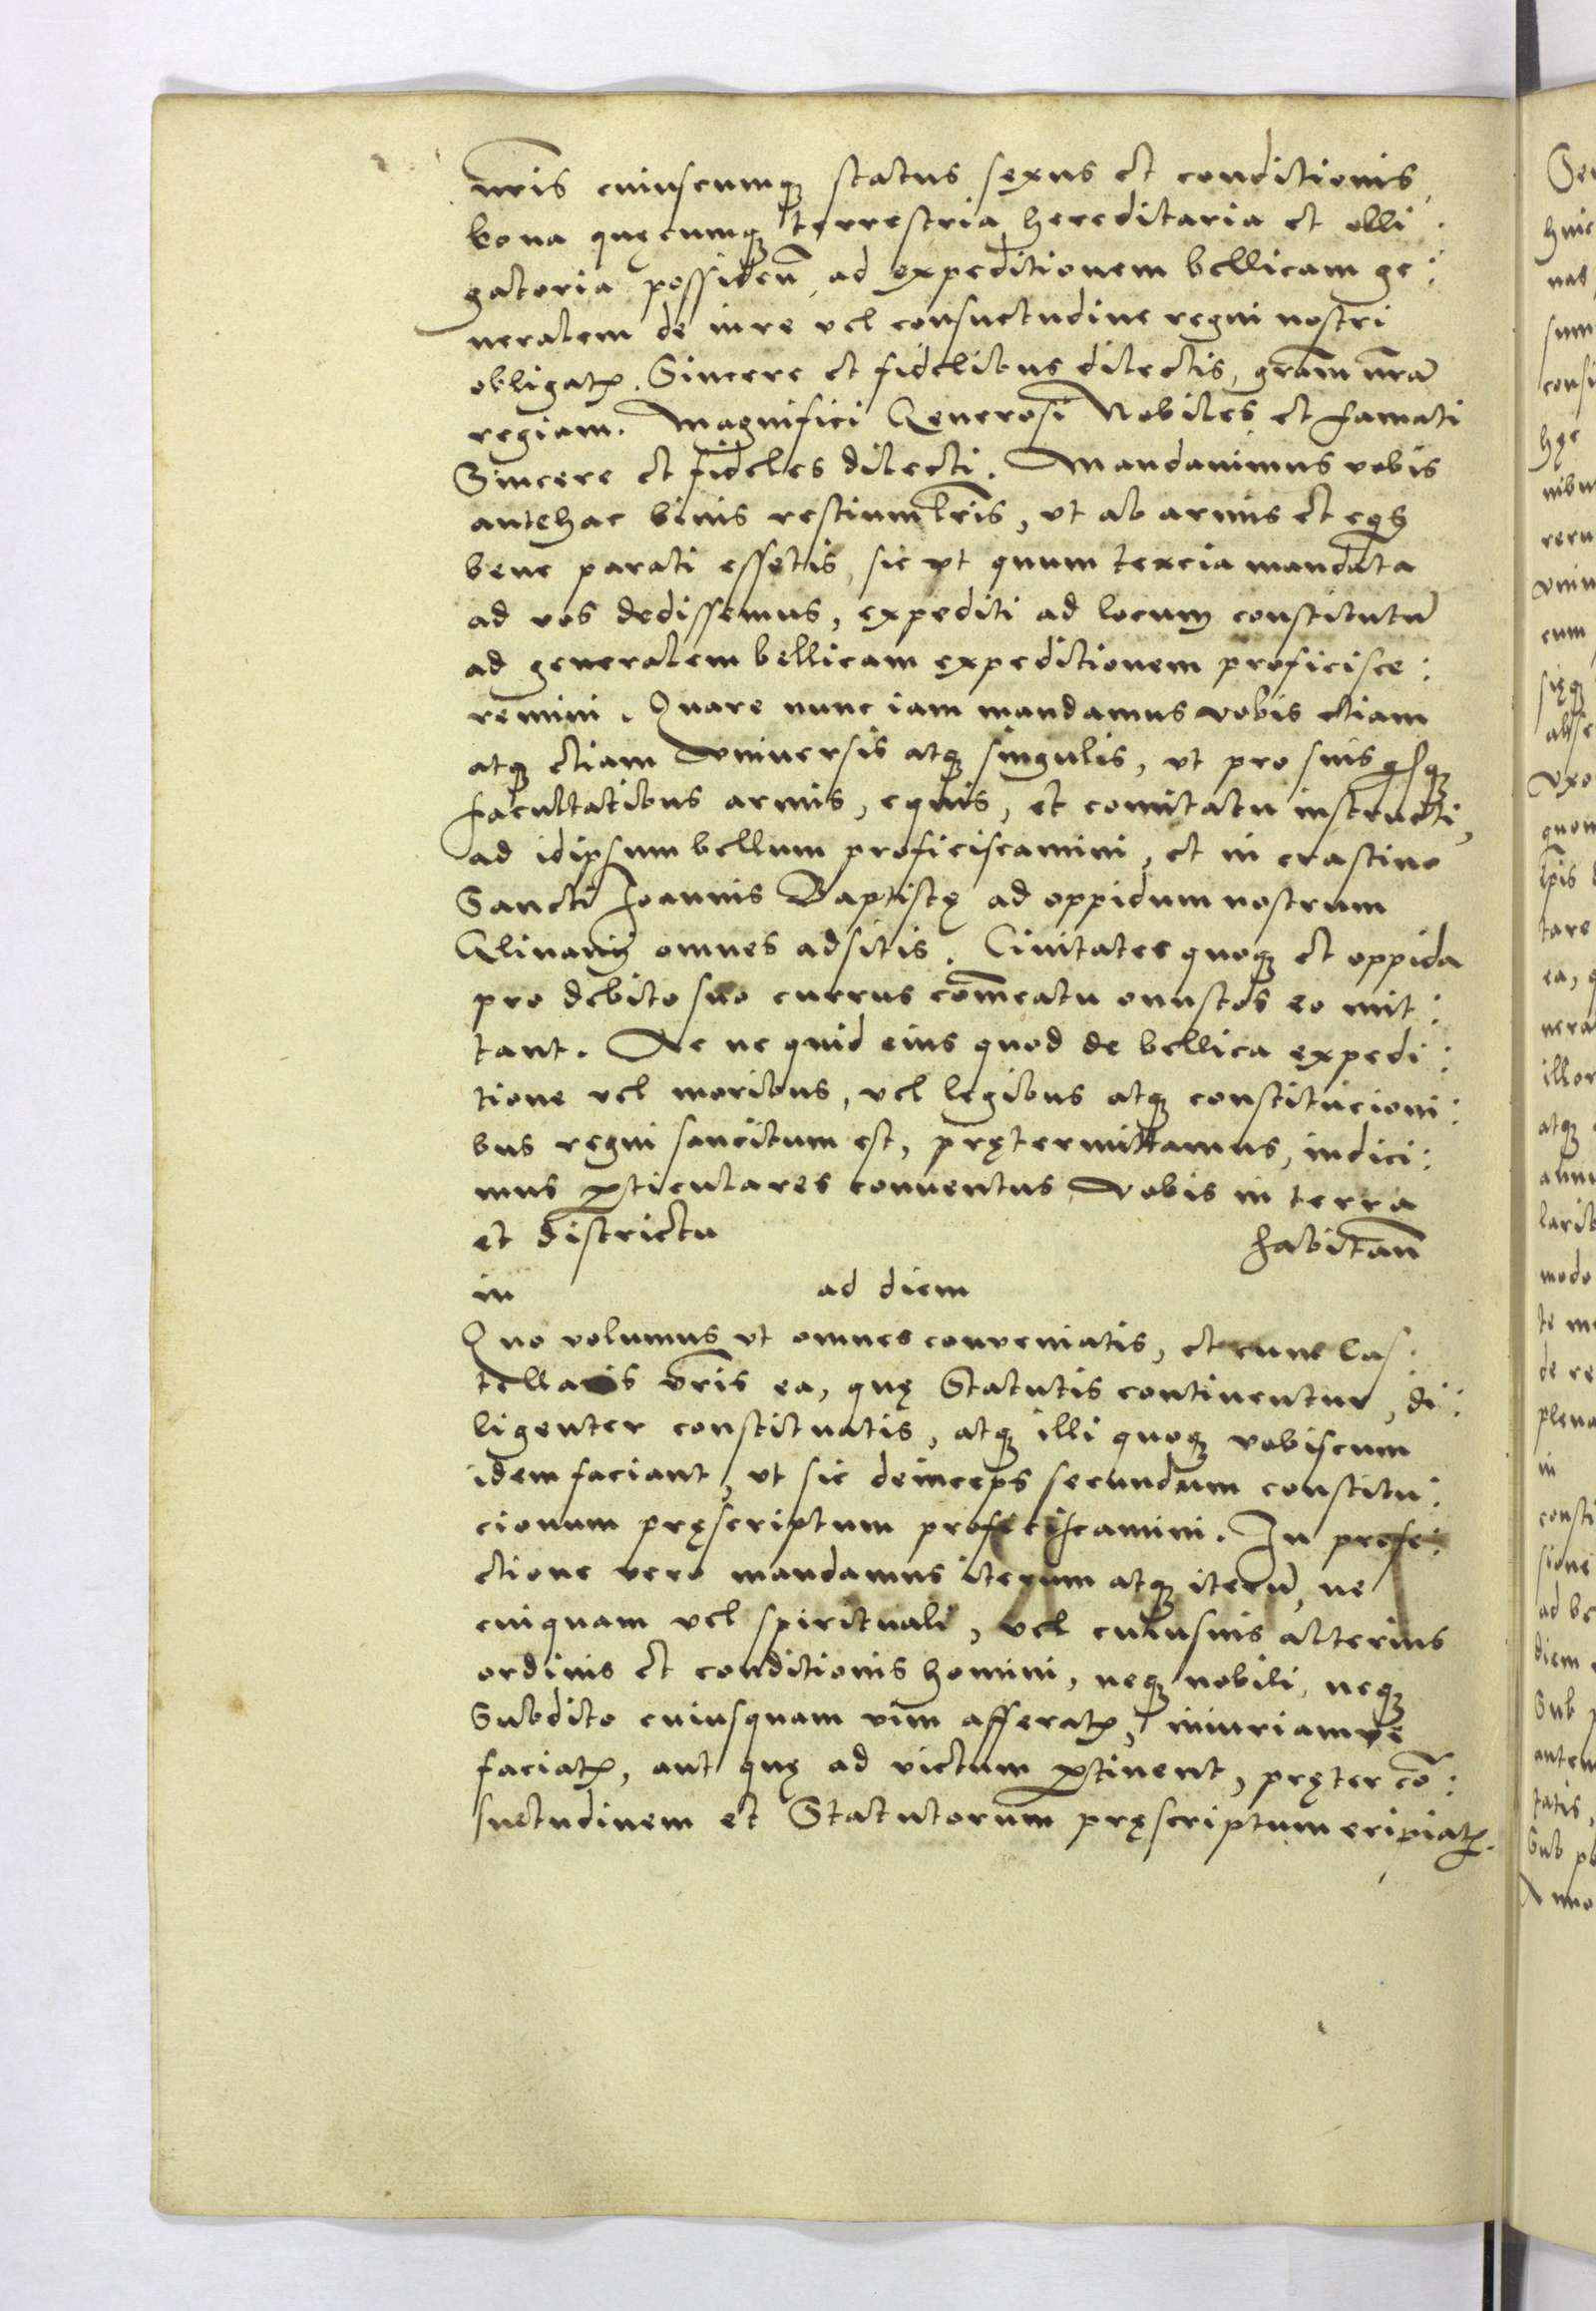 nr̄is cuiuscumqꝫ status sexus et conditionis
bona quęcumqꝫ terrestria hereditaria et obli:
gatoria possideñ, ad expeditionem bellicam ge:
neralem de iure vel consuetudine regni nostri
obligatꝭ. Sincere et fidelibus dilectis, grãm nrãm
regiam. Magnifici Generosi Nobiles et famati
Sincere et fideles dilecti. Mandauimus vobis
antehac binis restium lr̄is, vt ab armis et eqis
bene parati essetis, sic vt quum tercia mandata
ad vos dedissemus, expediti ad locum constitutũ
ad generalem bellicam expeditionem proficisce:
remini. Quare nunc iam mandamus vobis etiam
atqꝫ etiam vniuersis atqꝫ singulis, vt pro suis qsqꝫ
facultatibus armis, equis, et comitatu instructi,
ad idipsum bellum proficiscamini, et in crastino
Sancti Joannis Baptistę ad oppidum nostrum
Glinany omnes adsitis. Ciuitates quoqꝫ et oppida
pro debito suo currus com̄eatu onustos eo mit:
tant. Ac ne quid eius quod de bellica expedi:
tione vel moribus, vel legibus atqꝫ constitucioni:
bus regni sancitum est, prętermittamus, indici:
mus ꝑticulares conuentus vobis in terra
et districtu habitañ
in ad diem
Quo volumus vt omnes conveniatis, et cum Cas:
tellanis vr̄is ea, quę Statutis continentur, di:
ligenter constituatis, atqꝫ illi quoqꝫ vobiscum
idem faciant, vt sic deinceps secundum constitu:
cionum pręscriptum proficiscamini. In profe:
ctione vero mandamus iterum atqꝫ iterũ, ne
cuiquam vel spirituali, vel cuiusuis alterius
ordinis et conditionis homini, neqꝫ nobili, neqꝫ
Subdito cuiusquam vim afferatꝭ, iniuriamve
faciatꝭ, aut quę ad victum ꝑtinent, pręter cõ:
suetudinem et Statutorum pręscriptum eripiatꝭ.